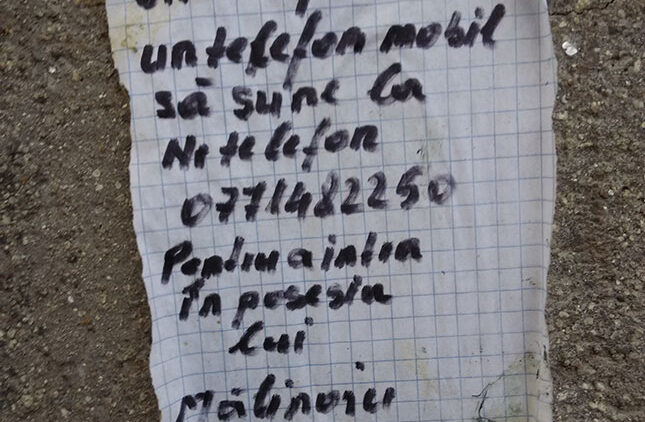 un telefon mobil
să sune la
Nr telefon
0771482250
Pentru a intra
în posesia
lui
Mălinoiu